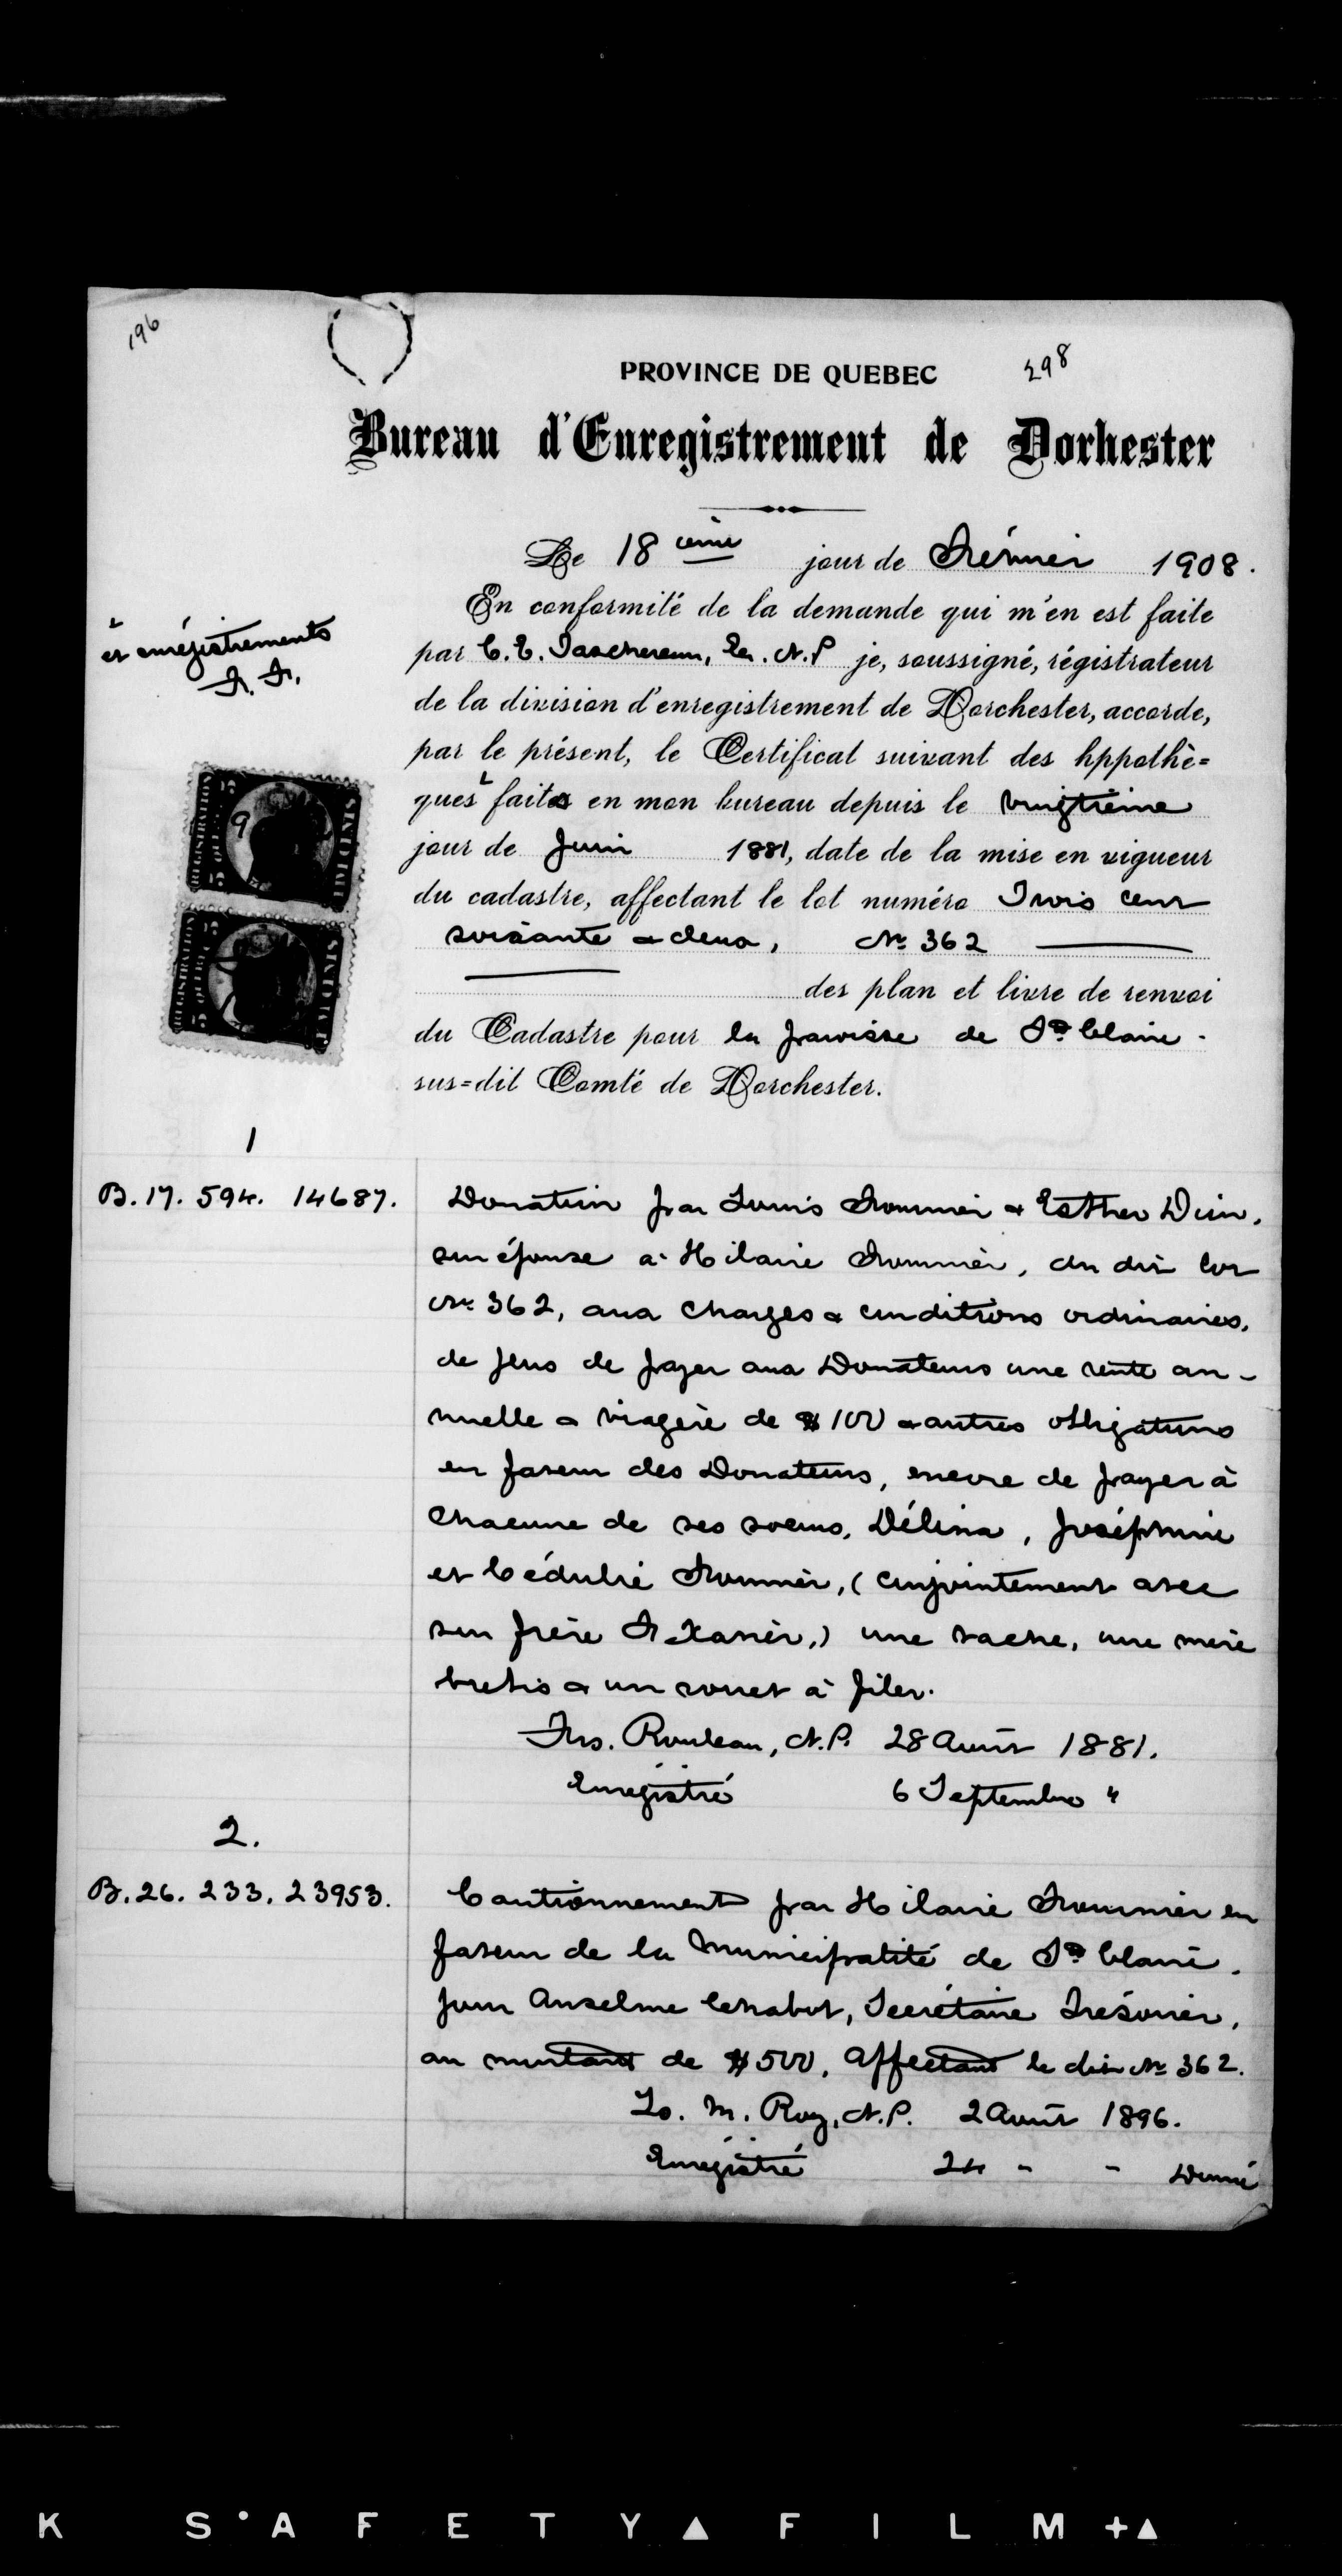 196
298
PROVINCE DE QUEBEC
Bureau d'Enregistrement de Dorhester
Le 18 ième jour de Février 1908.
En conformité de la demande qui m'en est faite
et enrégistrements
par C. E. Taschereau, Er. N.P je, soussigné, régistrateur
de la division d'enregistrement de Dorchester, accorde,
par le présent, le Certificat suivant des hppothè=
ques faites en mon bureau depuis le vingtième
jour de Juin 1881, date de la mise en vigueur
du cadastre, affectant le lot numéro Trois cent
soixante & deux, No 362
des plan et livre de renvoi
du Cadastre pour la paroisse de Ste Claire.
sus=dit Comté de Dorchester.
1
B. 17. 594. 14687. Donation par Louis Fournier & Esther Dion,
son épouse à Hilaire Fournier, du dit lot
No 362, aux charges & conditions ordinaires,
de plus de payer aux Donateurs une rente an-
nuelle & viagère de $100 & autres obligations
en faveur des Donateurs, encore de payer à
chacune de ses soeurs, Délina, Joséphine
et Cédulie Fournier, (conjointement avec
son frère F. Xavier,) une vache, une mère
brebis & un rouet à filer.
Frs. Rouleau, N.P. 28 Août 1881.
Enrégistré 6 Septembre "
2.
B. 26. 233. 23953. Cautionnement par Hilaire Fournier en
faveur de la Municipalité de Ste Claire.
pour Anselme Chabot, Secrétaire Trésorier,
au montant de $500, affectant le dit No 362.
Lo. M. Roy, N.P. 2 Août 1896.
Enrégistré 24 " " Donné
K SAFETY▲ FILM+▲